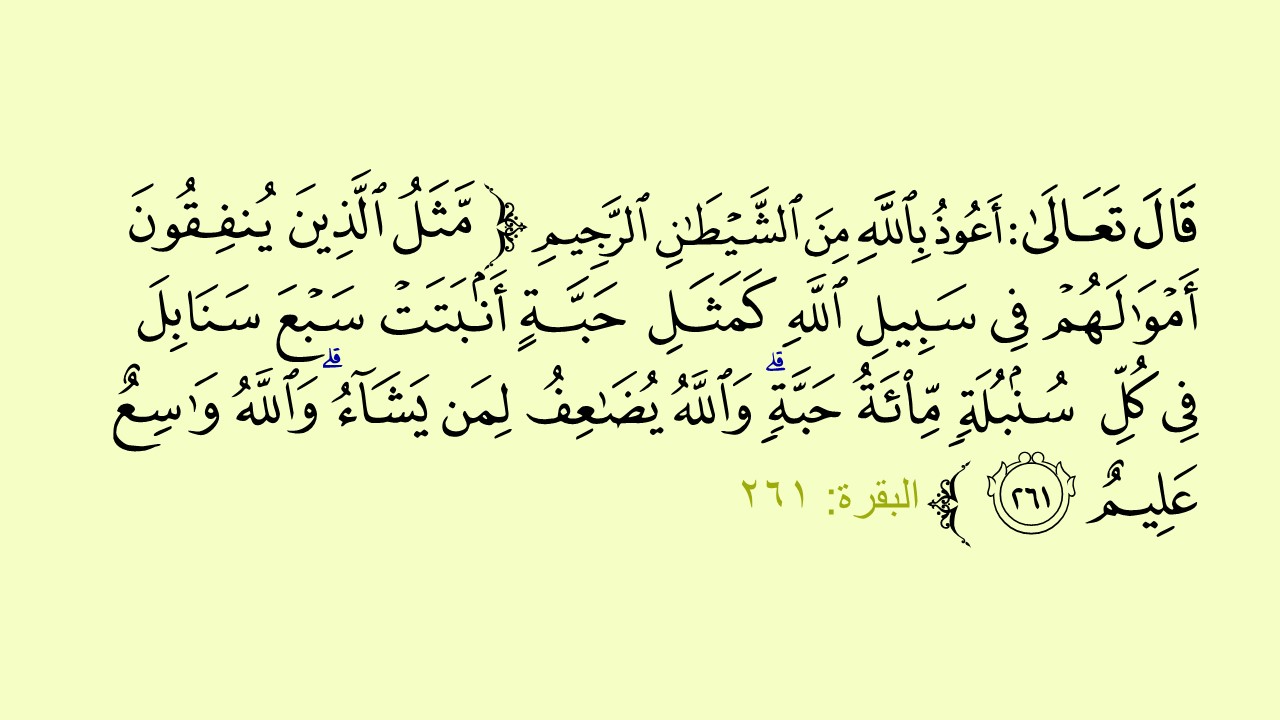 قَالَ تَعَالَىٰ: أَعُوذُ بِٱللَّهِ مِنَ ٱلشَّيۡطَٰنِ ٱلرَّجِيمِ ﴿ مَّثَلُ ٱلَّذِينَ يُنفِقُونَ
أَمۡوَٰلَهُمۡ فِي سَبِيلِ ٱللَّهِ كَمَثَلِ حَبَّةٍ أَنۢبَتَتۡ سَبۡعَ سَنَابِلَ
فِي كُلِّ سُنۢبُلَةٖ مِّاْئَةُ حَبَّةٖۗ وَٱللَّهُ يُضَٰعِفُ لِمَن يَشَآءُۗ وَٱللَّهُ وَٰسِعٌ
عَلِيمٌ ٢٦١ ﴾ البقرة: ٢٦١